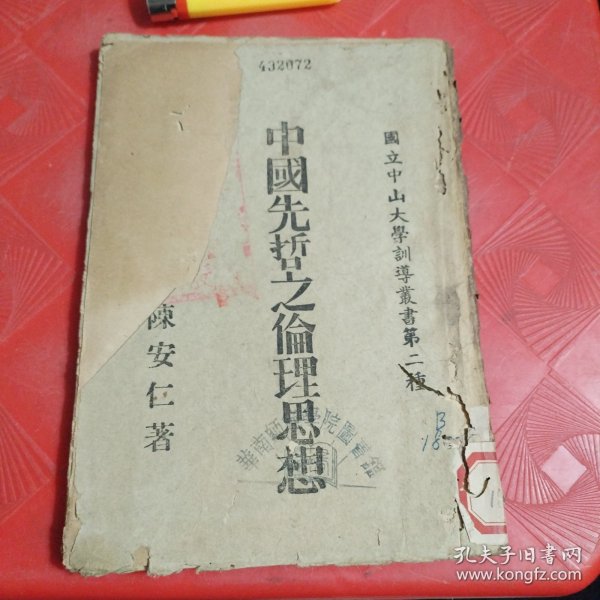 432072
國立中山大學訓導叢書第二種
中國先哲之倫理思想
陳安仁著
華南師學院圖書館
B
18
孔夫子旧书网
www.kongfz.com